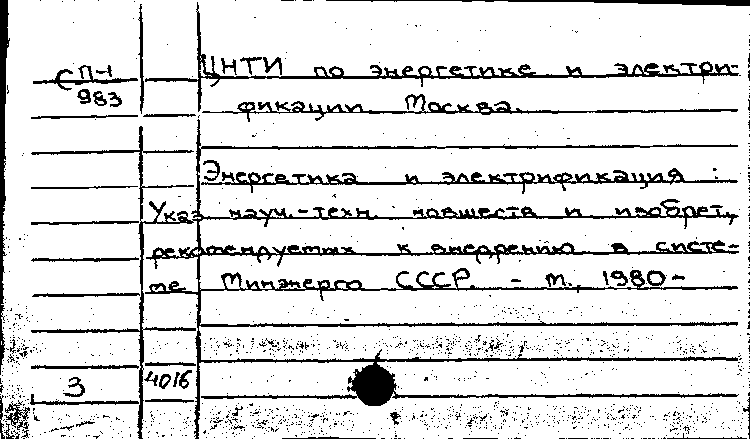 СП-1
983
ЦНТИ по энергетике и электри-
фикации. Москва.
Энергетика и электрификация :
Указ. науч.-техн. новшеств и изобрет.,
рекомендуемых к внедрению в систе-
ме Минэнерго СССР. - М., 1980-
3
4016